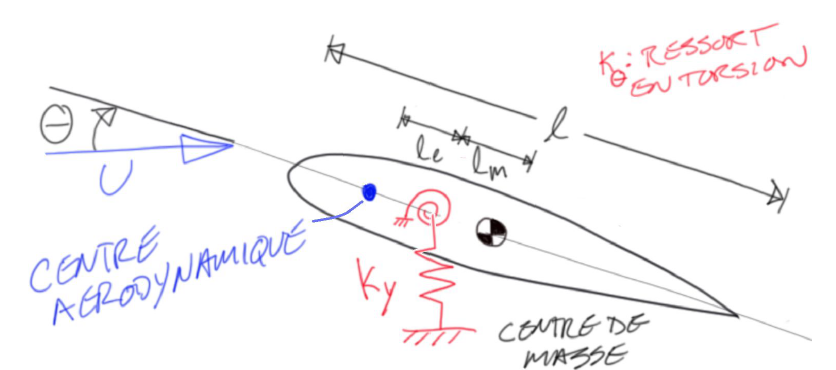 K_θ: RESSORT
EN TORSION
l
l_e
l_m
Θ
U
CENTRE
AERODYNAMIQUE
K_y
CENTRE DE
MASSE